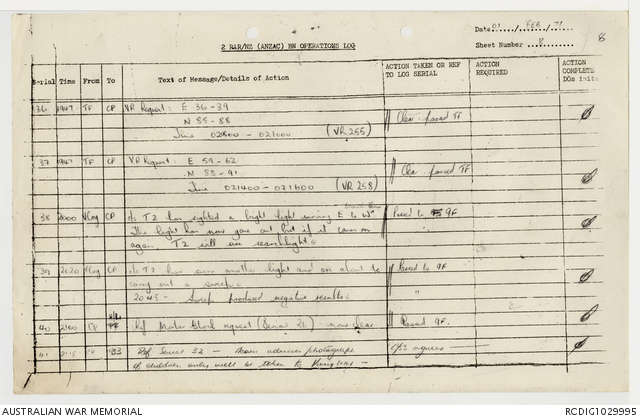 Date 01 / FEB / 71
2 RAR/NZ (ANZAC) BN OPERATIONS LOG
Sheet Number 8
8
Serial Time From To Text of Message/Details of Action ACTION TAKEN OR REF TO LOG SERIAL ACTION REQUIRED ACTION COMPLETE DOs init:
36 1947 TF CP VR Request : E 36-39
N 85-88
Time 020800 - 021000 (VR 255) // Clear - passed TF
37 1947 TF CP VR Request : E 59-62
N 88-91
Time 021400 - 021600 (VR 258) // Clear - passed TF
38 2000 CP T2 has sighted a bright light moving E to W // Passed to GF
The light has now gone out but if it comes on "
again T2 will use searchlight.
39 2020 CP T2 has seen another light and are about to // Passed to GF
carry out a sweep. "
2045 - Sweep produced negative results.
40 2100 CP Ref Mortar block request (Serial ) now clear // Passed GF.
41 Ref Serial 32 -
of children will be taken to
AUSTRALIAN WAR MEMORIAL
RCDIG1029995